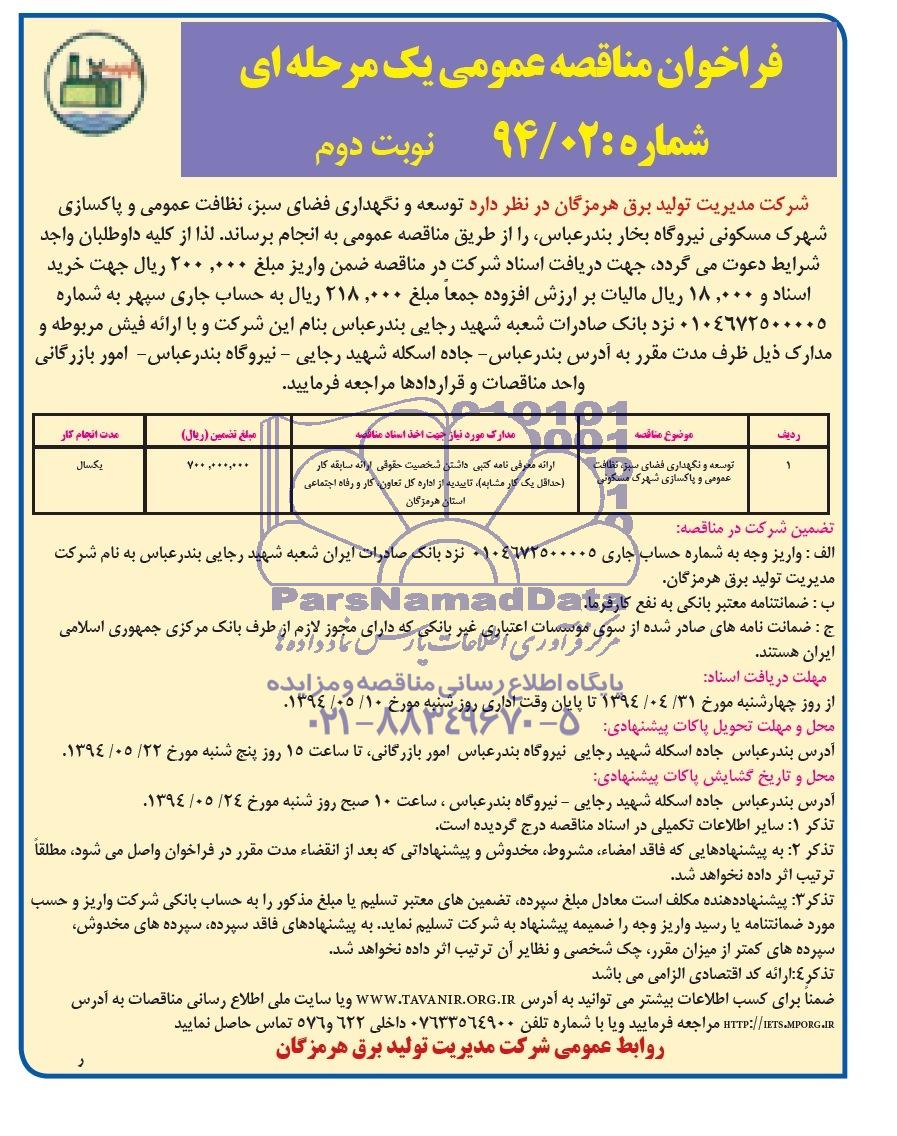 فراخوان مناقصه عمومی یک مرحله ای
شماره: ۹۴/۰۲ نوبت دوم
شرکت مدیریت تولید برق هرمزگان در نظر دارد توسعه و نگهداری فضای سبز، نظافت عمومی و پاکسازی
شهرک مسکونی نیروگاه بخار بندرعباس، را از طریق مناقصه عمومی به انجام برساند. لذا از کلیه داوطلبان واجد
شرایط دعوت می گردد، جهت دریافت اسناد شرکت در مناقصه ضمن واریز مبلغ ۲۰۰,۰۰۰ ریال جهت خرید
اسناد و ۱۸,۰۰۰ ریال مالیات بر ارزش افزوده جمعاً مبلغ ۲۱۸,۰۰۰ ریال به حساب جاری سپهر به شماره
۰۱۰٤٦۷۲٥۰۰۰۰٥ نزد بانک صادرات شعبه شهید رجایی بندرعباس بنام این شرکت و با ارائه فیش مربوطه و
مدارک ذیل ظرف مدت مقرر به آدرس بندرعباس- جاده اسکله شهید رجایی - نیروگاه بندرعباس- امور بازرگانی
واحد مناقصات و قراردادها مراجعه فرمایید.
ردیف موضوع مناقصه مدارک مورد نیاز جهت اخذ اسناد مناقصه مبلغ تضمین (ریال) مدت انجام کار
۱ توسعه و نگهداری فضای سبز، نظافت ارائه معرفی نامه کتبی داشتن شخصیت حقوقی ارائه سابقه کار ۷۰۰,۰۰۰,۰۰۰ یکسال
عمومی و پاکسازی شهرک مسکونی (حداقل یک کار مشابه)، تاییدیه از اداره کل تعاون، کار و رفاه اجتماعی
استان هرمزگان
تضمین شرکت در مناقصه:
الف : واریز وجه به شماره حساب جاری ۰۱۰٤٦۷۲٥۰۰۰۰٥ نزد بانک صادرات ایران شعبه شهید رجایی بندرعباس به نام شرکت
مدیریت تولید برق هرمزگان.
ب : ضمانتنامه معتبر بانکی به نفع کارفرما.
ج : ضمانت نامه های صادر شده از سوی موسسات اعتباری غیر بانکی که دارای مجوز لازم از طرف بانک مرکزی جمهوری اسلامی
ایران هستند.
مهلت دریافت اسناد:
از روز چهارشنبه مورخ ۳۱/ ۰٤/ ۱۳۹٤ تا پایان وقت اداری روز شنبه مورخ ۱۰/ ۰٥/ ۱۳۹٤.
محل و مهلت تحویل پاکات پیشنهادی:
آدرس بندرعباس جاده اسکله شهید رجایی نیروگاه بندرعباس امور بازرگانی، تا ساعت ۱٥ روز پنج شنبه مورخ ۲۲/ ۰٥/ ۱۳۹٤.
محل و تاریخ گشایش پاکات پیشنهادی:
آدرس بندرعباس جاده اسکله شهید رجایی - نیروگاه بندرعباس ، ساعت ۱۰ صبح روز شنبه مورخ ۲٤/ ۰٥/ ۱۳۹٤.
تذکر ۱: سایر اطلاعات تکمیلی در اسناد مناقصه درج گردیده است.
تذکر ۲: به پیشنهادهایی که فاقد امضاء، مشروط، مخدوش و پیشنهاداتی که بعد از انقضاء مدت مقرر در فراخوان واصل می شود، مطلقاً
ترتیب اثر داده نخواهد شد.
تذکر۳: پیشنهاددهنده مکلف است معادل مبلغ سپرده، تضمین های معتبر تسلیم یا مبلغ مذکور را به حساب بانکی شرکت واریز و حسب
مورد ضمانتنامه یا رسید واریز وجه را ضمیمه پیشنهاد به شرکت تسلیم نماید. به پیشنهادهای فاقد سپرده، سپرده های مخدوش،
سپرده های کمتر از میزان مقرر، چک شخصی و نظایر آن ترتیب اثر داده نخواهد شد.
تذکر٤:ارائه کد اقتصادی الزامی می باشد
ضمناً برای کسب اطلاعات بیشتر می توانید به آدرس WWW.TAVANIR.ORG.IR ویا سایت ملی اطلاع رسانی مناقصات به آدرس
HTTP://IETS.MPORG.IR مراجعه فرمایید ویا با شماره تلفن ۰۷٦۳۳٥٦٤۹۰۰ داخلی ٦۲۲ و٥۷٦ تماس حاصل نمایید
روابط عمومی شرکت مدیریت تولید برق هرمزگان
ر
ParsNamadData
مرکز فرآوری اطلاعات پارس نماد داده ها
پایگاه اطلاع رسانی مناقصه و مزایده
۰۲۱-۸۸۳۴۹۶۷۰-۵